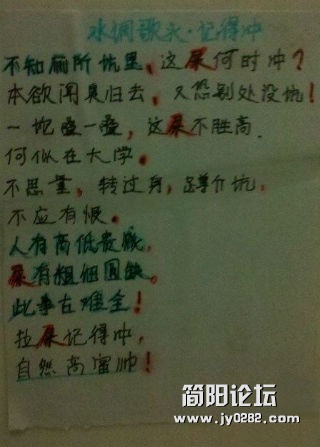 水调歌头·记得冲
不知厕所坑里,这屎何时冲?
本欲闻臭归去,又恐别处没坑!
一坨叠一叠,这屎不胜高.
何似在大学。
不思量,转过身,蹲个坑,
不应有恨。
人有高低贵贱,
屎有粗细圆缺。
此事古难全!
拉屎记得冲,
自然高富帅!
简阳论坛
www.jy0282.com